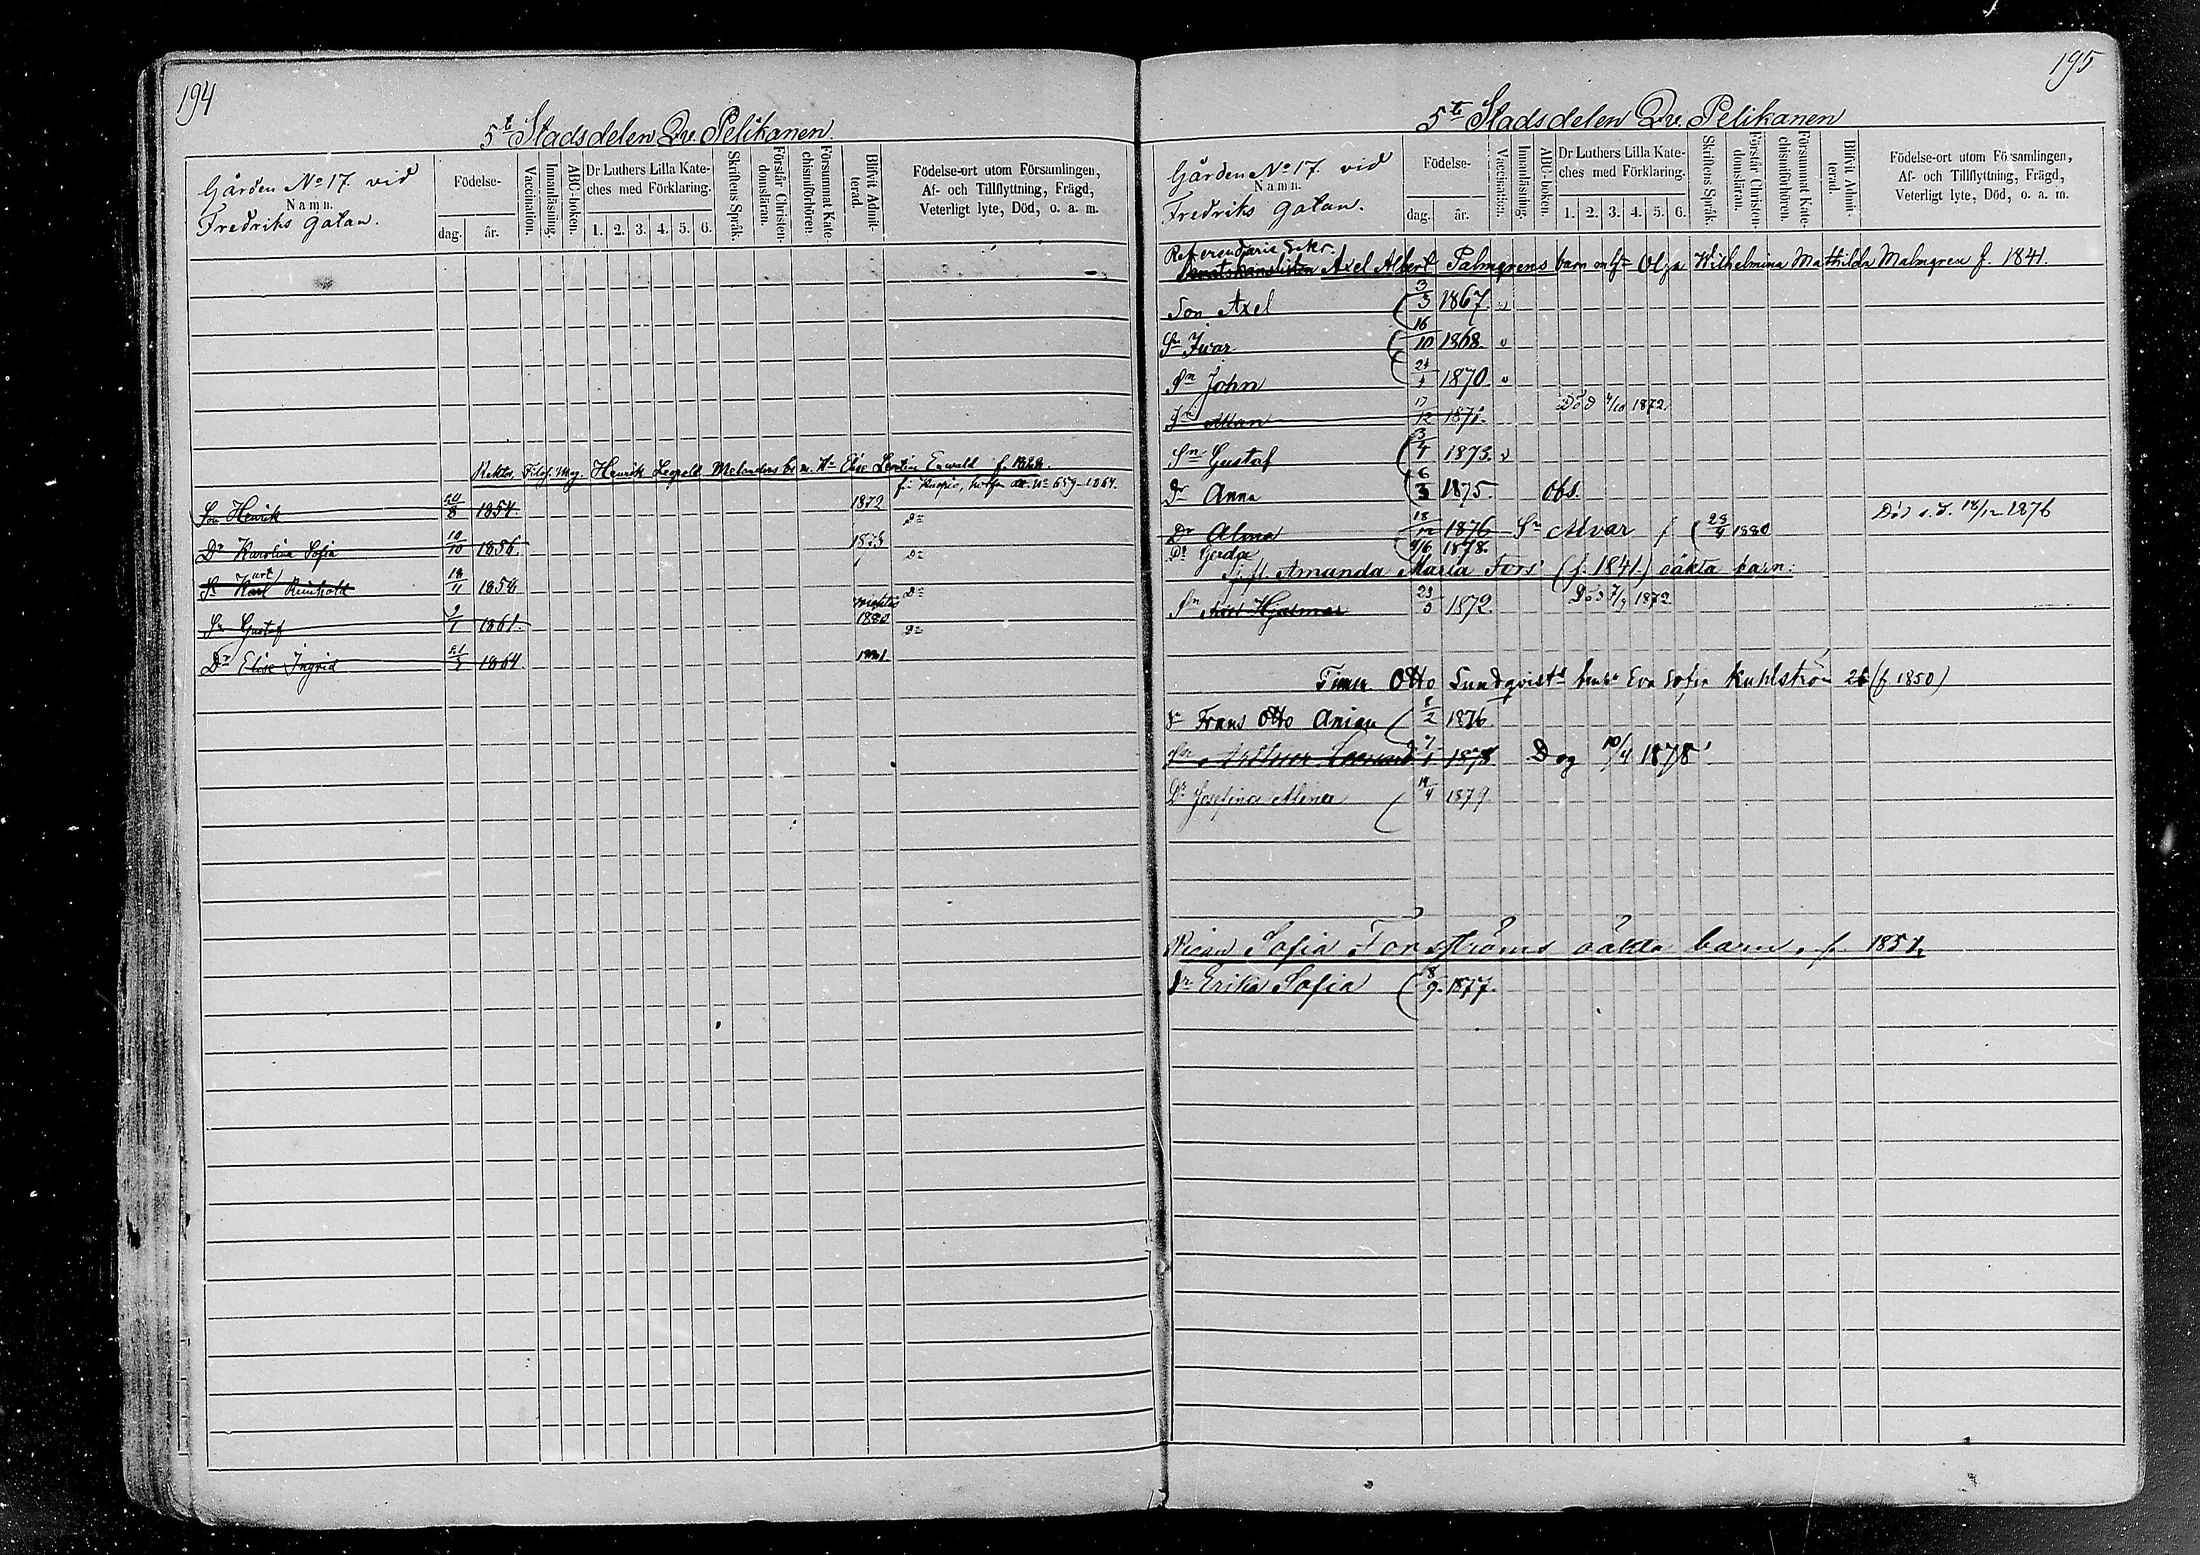 194
5te Stadsdelen Qv. Pelikanen
Gården No 17. vid
Namn.
Fredriks gatan.
Födelse-
dag.
år.
Vaccination.
Innanläsning.
ABC-boken.
Dr Luthers Lilla Kate-
ches med Förklaring.
1. 2. 3. 4. 5. 6.
Skriftens Språk.
Förstår Christen-
domsläran.
Försummat Kate-
chismiförhören.
Blifvit Admit-
terad.
Födelse-ort utom Församlingen,
Af- och Tillflyttning, Frägd,
Veterligt lyte, Död, o. a. m.
Rektor, Filof. Mag. Henrik Leopold Melanders
659-1864.
Son Henrik 20/8 1854 1872 Do
Dr Karolina Sofia 10/10 1856. 1873 Do
Sn Karl Reinhold Do
Sn Gustaf 1861. 1880 Do
Dr Elise Ingrid 1864
195
5te Stadsdelen Qv. Pelikanen
Gården No 17. vid
Namn.
Fredriks gatan.
Födelse-
dag.
år.
Vaccination.
Innanläsning.
ABC-boken.
Dr Luthers Lilla Kate-
ches med Förklaring.
1. 2. 3. 4. 5. 6.
Skriftens Språk.
Förstår Christen-
domsläran.
Försummat Kate-
chismiförhören.
Blifvit Admit-
terad.
Födelse-ort utom Församlingen,
Af- och Tillflyttning, Frägd,
Veterligt lyte, Död, o. a. m.
Referendarie Sekr.
Axel Albert Palmgrens barn m. H. Olga Wilhelmina Mathilda Malmgren f. 1841.
Son Axel 3/3 1867.
Sn Ivar 16/10 1868.
Sn John 1870.
Sn Allan 1871. Död 4/10 1872.
Sn Gustaf 1873.
Dr Anna 1875. Obs.
Dr Alma 18/12 1876 Sn Alvar f 23/9 1880 Död s. d. 18/12 1876
Dr Gerda 4/6 1878.
Amanda Maria Fors (f. 1841.) oäkta barn:
Sn Hjalmar 1872 Död 7/9 1872
Timm. Otto Lundqvists Eva Sofia Kuhlström (f 1850)
Sn Frans Otto Anian 8/2 1876
Sn Arthur 1878 Dog 10/4 1878
Dr Josefina Alma 1879.
Pigan Sofia Forsströms oäkta barn. f. 1851.
Dr Erika Sofia 8/9. 1877.